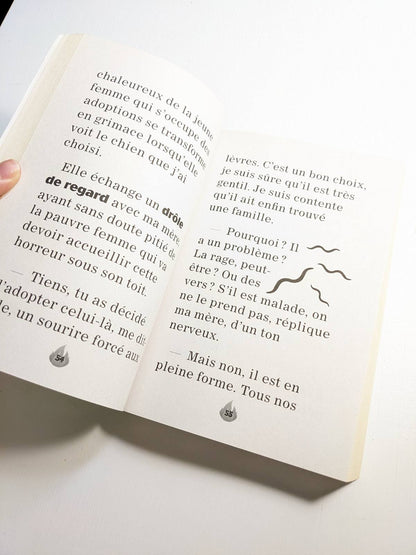 chaleureux de la jeune
femme qui s'occupe des
adoptions se transforme
en grimace lorsqu'elle
voit le chien que j'ai
choisi.
Elle échange un drôle
de regard avec ma mère,
ayant sans doute pitié de
la pauvre femme qui va
devoir accueillir cette
horreur sous son toit.
— Tiens, tu as décidé
d'adopter celui-là, me dit-
un sourire forcé aux
54
lèvres. C'est un bon choix,
je suis sûre qu'il est très
gentil. Je suis contente
qu'il ait enfin trouvé
une famille.
— Pourquoi ? Il
a un problème ?
La rage, peut-
être ? Ou des
vers ? S'il est malade, on
ne le prend pas, réplique
ma mère, d'un ton
nerveux.
— Mais non, il est en
pleine forme. Tous nos
55